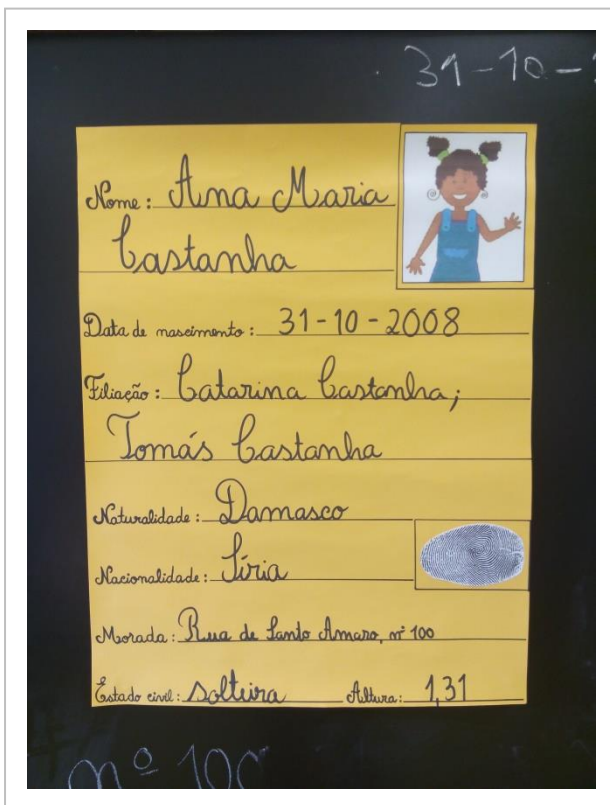 31-10-
Nome: Ana Maria
Castanha
Data de nascimento: 31-10-2008
Filiação: Catarina Castanha;
Tomás Castanha
Naturalidade: Damasco
Nacionalidade: Síria
Morada: Rua de Santo Amaro, nº 100
Estado civil: solteira Altura: 1,31
nº 100